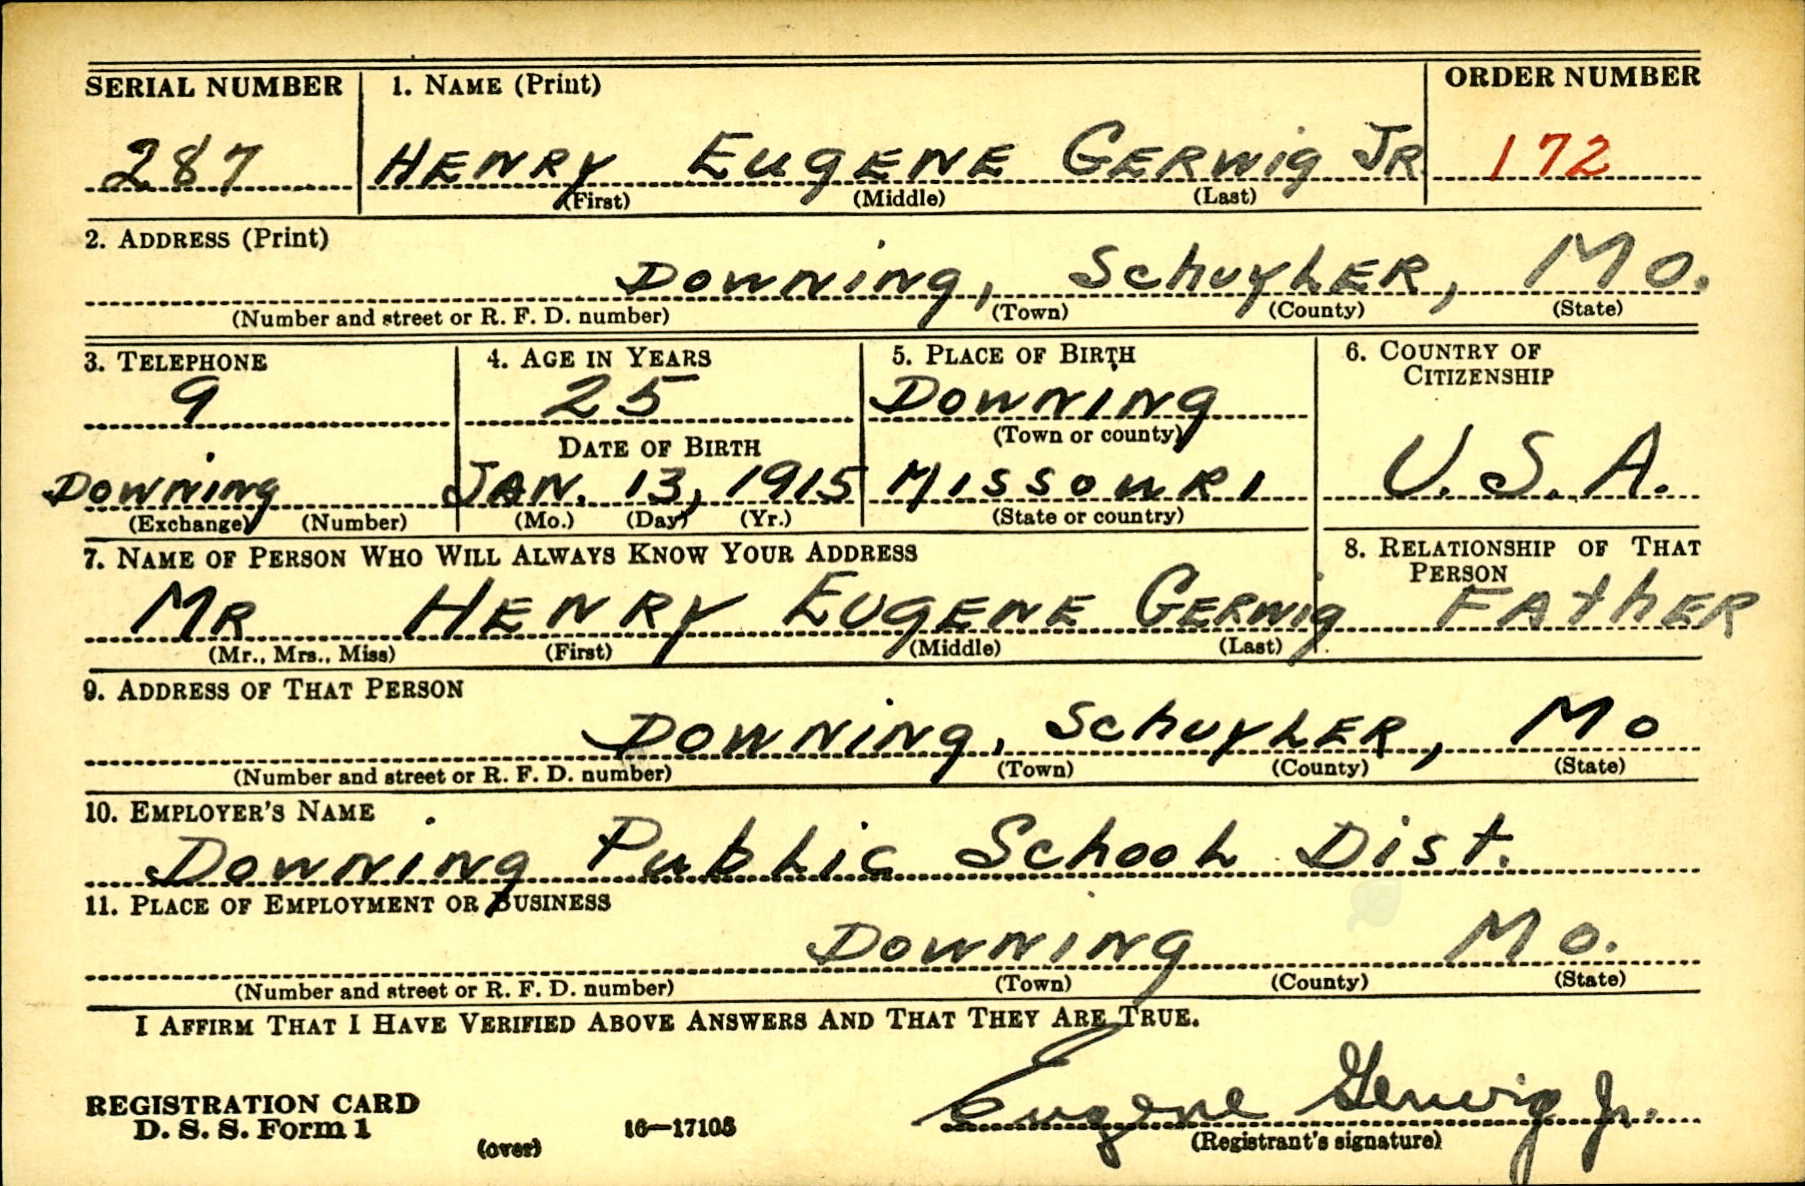 SERIAL NUMBER 1. NAME (Print) ORDER NUMBER
287 HENRY EUGENE GERWIG JR 172
(First) (Middle) (Last)
2. ADDRESS (Print)
DOWNING, SCHUYLER, MO.
(Number and street or R. F. D. number) (Town) (County) (State)
3. TELEPHONE 4. AGE IN YEARS 5. PLACE OF BIRTH 6. COUNTRY OF CITIZENSHIP
9 25 DOWNING
(Town or county)
DATE OF BIRTH
DOWNING JAN. 13, 1915 MISSOURI U.S.A.
(Exchange) (Number) (Mo.) (Day) (Yr.) (State or country)
7. NAME OF PERSON WHO WILL ALWAYS KNOW YOUR ADDRESS 8. RELATIONSHIP OF THAT PERSON
MR HENRY EUGENE GERWIG FATHER
(Mr., Mrs., Miss) (First) (Middle) (Last)
9. ADDRESS OF THAT PERSON
DOWNING, SCHUYLER, MO
(Number and street or R. F. D. number) (Town) (County) (State)
10. EMPLOYER'S NAME
DOWNING PUBLIC SCHOOL DIST.
11. PLACE OF EMPLOYMENT OR BUSINESS
DOWNING MO.
(Number and street or R. F. D. number) (Town) (County) (State)
I AFFIRM THAT I HAVE VERIFIED ABOVE ANSWERS AND THAT THEY ARE TRUE.
Eugene Gerwig Jr.
REGISTRATION CARD
D. S. S. Form 1 (over) 16—17105 (Registrant's signature)